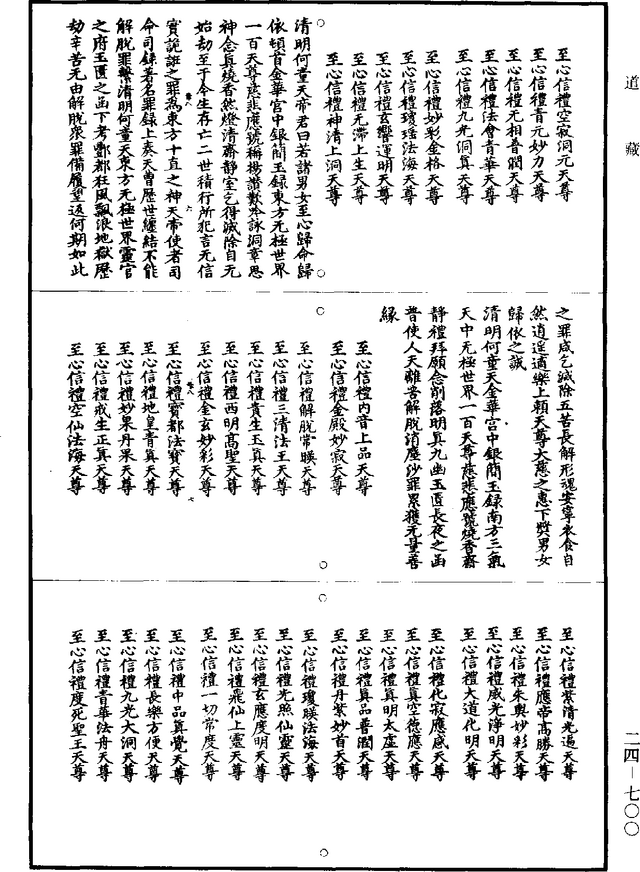 道藏
至心信禮空寂洞元天尊
至心信禮青元妙力天尊
至心信禮元相普潤天尊
至心信禮法會青華天尊
至心信禮九光洞真天尊
至心信禮妙彩金格天尊
至心信禮瓊瑤法海天尊
至心信禮玄響運明天尊
至心信禮无滯上生天尊
至心信禮神清上洞天尊
清明何童天帝君曰若諸男女至心歸命歸
依頓首金華宮中銀簡玉錄東方无極世界
一百天尊慈悲應號稱揚讚歎吟詠洞章思
神念真燒香然燈清齋靜室乞得滅除自无
始劫至于今生存亡二世積行所犯言无信
實詭誑之罪為東方十直之神天帝使者司
命司錄著名罪錄上奏天曹歷世纏結不能
解脫罪繫清明何童天東方无極世界靈官
之府玉匱之函下考酆都狂風飄浪地獄歷
劫辛苦无由解脫衆罪備履望返何期如此
之罪咸乞滅除五苦長解形魂安寧衣食自
然逍遥適樂上賴天尊大慈之惠下獎男女
歸依之誠
清明何童天金華宮中銀簡玉錄南方三氣
天中无極世界一百天尊慈悲應號燒香齋
靜禮拜願念削落明真九幽玉匱長夜之函
普使人天離苦解脫消塵沙罪累獲无量善
緣
至心信禮内音上品天尊
至心信禮金殿妙寂天尊
至心信禮解脫常暎天尊
至心信禮三清法王天尊
至心信禮貴生玉真天尊
至心信禮西明高聖天尊
至心信禮金玄妙彩天尊
至心信禮寶都法寶天尊
至心信禮地皇青真天尊
至心信禮妙果丹果天尊
至心信禮戒生正真天尊
至心信禮空仙法海天尊
至心信禮紫清光遍天尊
至心信禮應帝高勝天尊
至心信禮朱輿妙彩天尊
至心信禮威光淨明天尊
至心信禮大道化明天尊
至心信禮化寂應感天尊
至心信禮真空德應天尊
至心信禮真明太虛天尊
至心信禮真品善潤天尊
至心信禮丹紫妙首天尊
至心信禮瓊暎法海天尊
至心信禮光照仙靈天尊
至心信禮玄應度明天尊
至心信禮飛仙上靈天尊
至心信禮一切常度天尊
至心信禮中品真覺天尊
至心信禮長樂方便天尊
至心信禮九光大洞天尊
至心信禮青華法舟天尊
至心信禮度死聖王天尊
二四-七〇〇